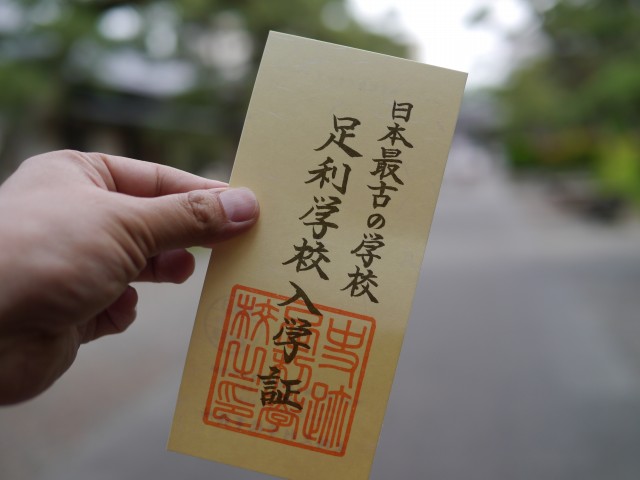 日本最古の学校
足利学校入学証
史跡
足利學
校之印